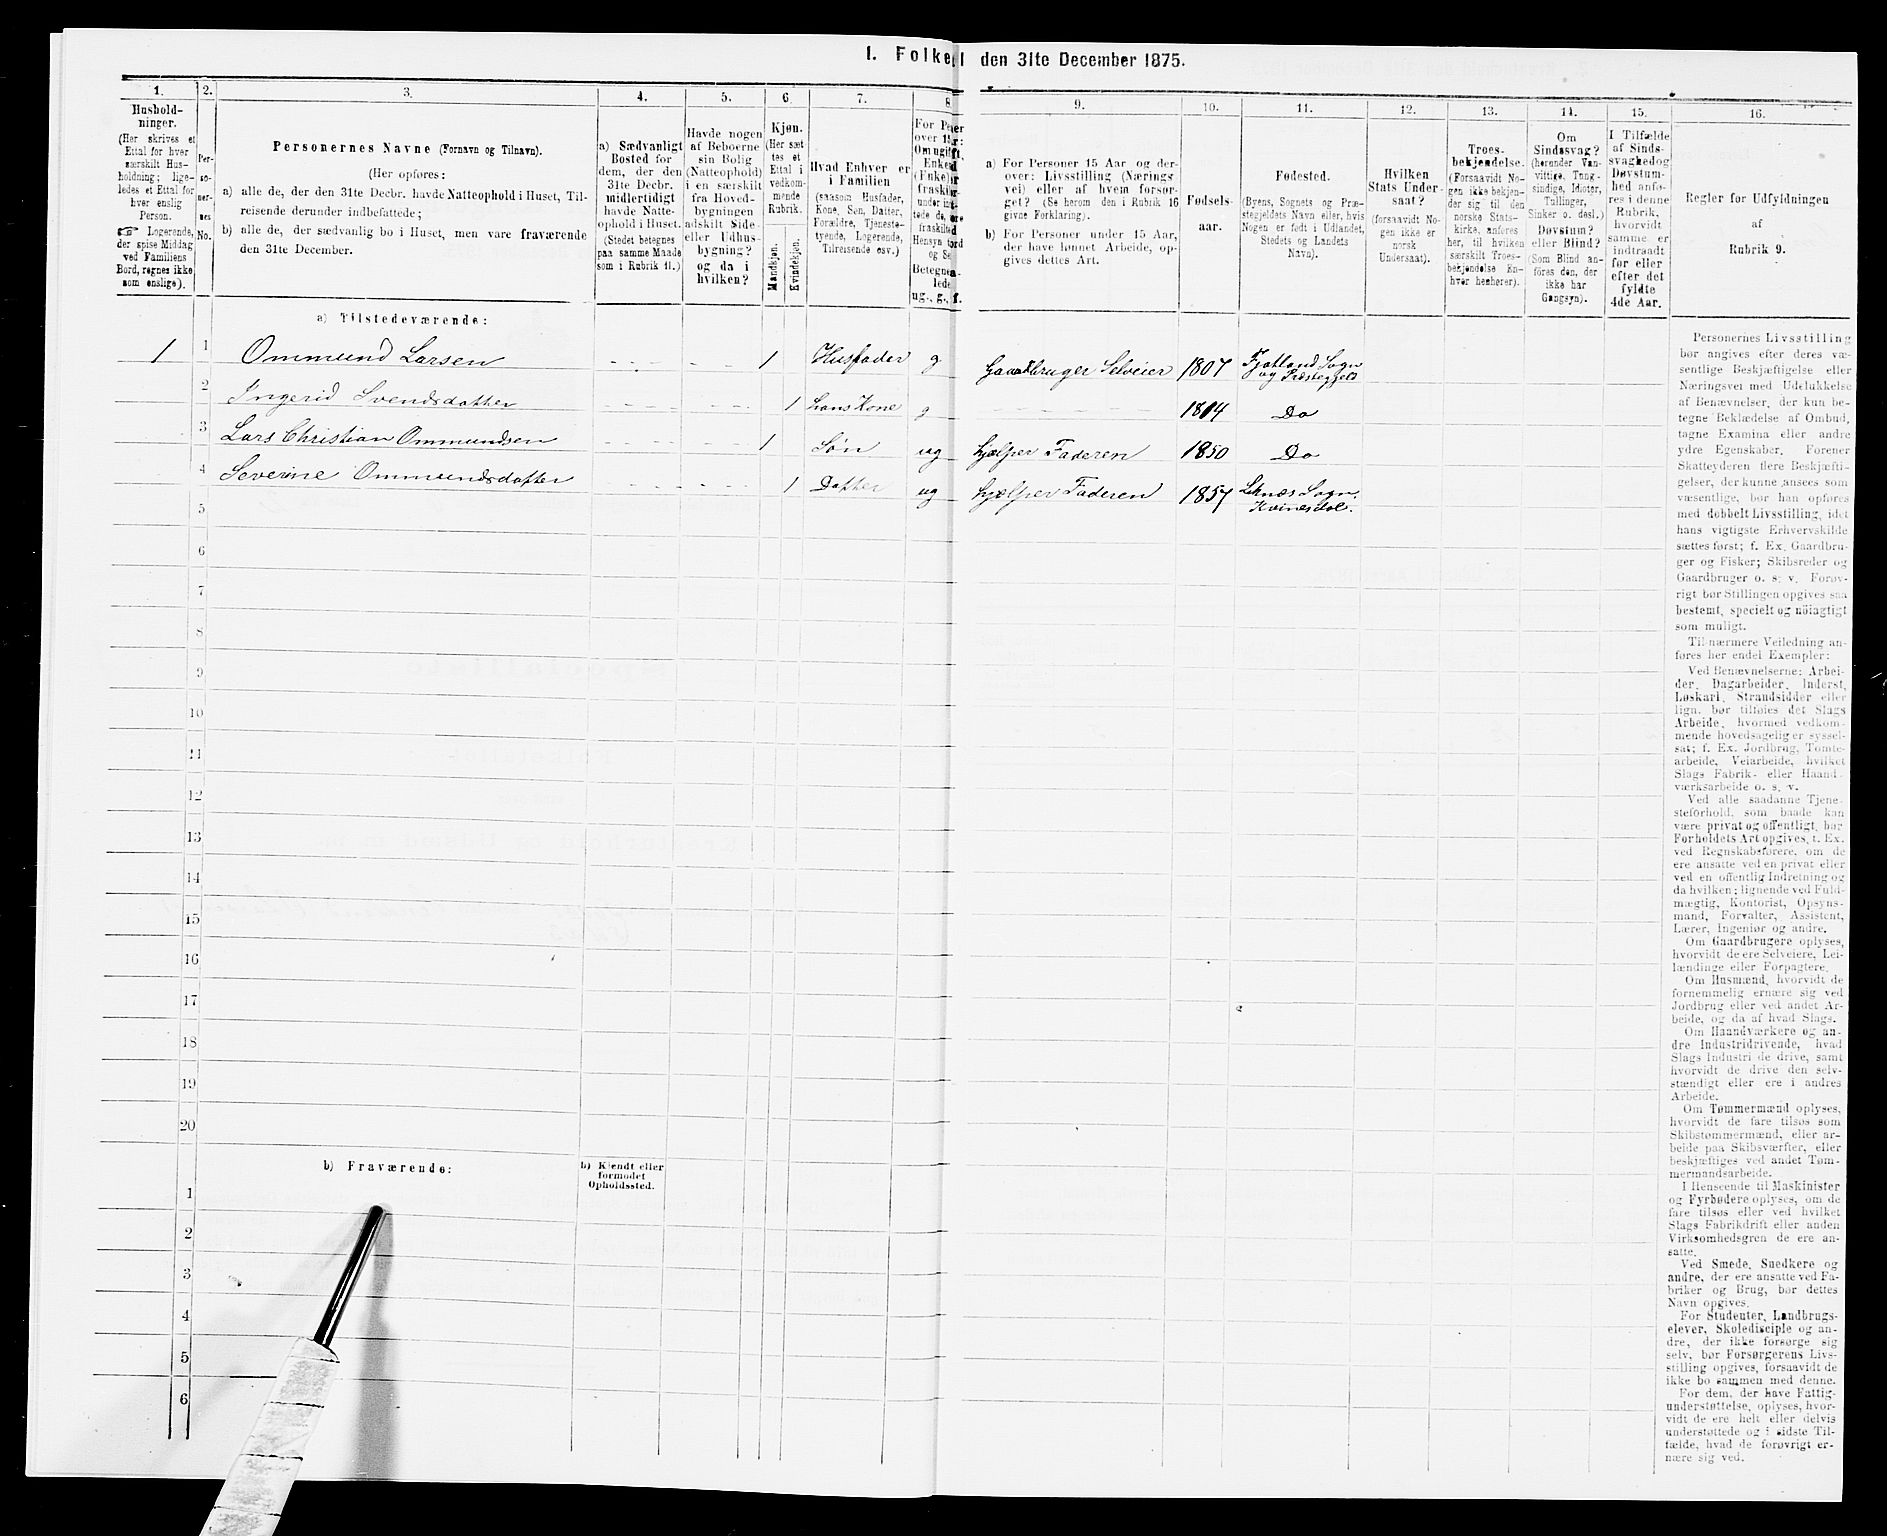 I. Folke
den 31te December 1875.
1.
Hushold-
ninger.
(Her skrives et
Ettal for hver
særskilt Hus-
holdning; lige-
ledes et Ettal for
hver enslig
Person.
Logerende,
der spise Middag
ved Familiens
Bord, regnes ikke
som enslige).
2.
Per-
so-
ner-
nes
No.
3.
Personernes Navne (Fornavn og Tilnavn).
(Her opføres:
a) alle de, der den 31te Decbr. havde Natteophold i Huset, Til-
reisende derunder indbefattede;
b) alle de, der sædvanlig bo i Huset, men vare fraværende
den 31te December.
4.
a) Sædvanligt
Bosted for
dem, der den
31te Decbr.
midlertidigt
havde Natte-
ophold i Huset.
(Stedet betegnes
paa samme Maade
som i Rubrik 11.)
5.
Havde nogen
af Beboerne
sin Bolig
(Natteophold)
i en særskilt
fra Hoved-
bygningen
adskilt Side-
eller Udhus-
bygning?
og da i
hvilken?
6.
Kjøn.
(Her sæt
tes et
Ettal i
vedkom-
mende
Rubrik.
Mandkjøn.
Kvindekjøn.
7.
Hvad Enhver er
i Familien
(saasom Husfader,
Kone, Søn, Datter,
Forældre, Tjeneste-
tyende, Logerende,
Tilreisende osv.)
8
For Pe
over 15
Om ugift
Enke
(Enke)
fraskil
under
tede de,
fraskilte
Hensyn
og Se
Betegne
lede
ug., g., f.
9.
a) For Personer 15 Aar og der-
over: Livsstilling (Nærings-
vei) eller af hvem forsør-
get? (Se herom den i Rubrik 16
givne Forklaring).
b) For Personer under 15 Aar,
der have lønnet Arbeide, op-
gives dettes Art.
10.
Fødsels-
aar.
11.
Fødested.
(Byens, Sognets og Præ-
stegjeldets Navn eller, hvis
Nogen er født i Udlandet,
Stedets og Landets
Navn).
12.
Hvilken
Stats Under-
saat?
(forsaavidt No-
gen ikke er
norsk
Undersaat).
13.
Troes-
bekjendelse.
(Forsaavidt No-
gen ikke bekjen-
der sig til den
norske Stats-
kirke, anføres
her, til hvilken
særskilt Troes-
bekjendelse En-
hver henhører).
14.
Om
Sindssvag?
(herunder Van-
vittige, Tung-
sindige, Idioter,
Tullinger,
Sinker o. desl.)
Døvstum?
eller Blind?
(Som Blind an-
føres den, der
ikke har
Gangsyn).
15.
I Tilfælde
af Sinds-
svaghed og
Døvstum-
hed anfø-
res i denne
Rubrik,
hvorvidt
samme er
indtraadt
før eller
efter det
fyldte
4de Aar.
16.
Regler for Udfyldningen
af
Rubrik 9.
a) Tilstedeværende:
1 1 Ommund Larsen 1 Husfader g Gaardbruger Selveier 1807 Fjotland Sogn
og Præstegjeld
2 Ingerid Svendsdatter 1 hans Kone g 1814 Do
3 Lars Christian Ommundsen 1 Søn ug hjælper Faderen 1850 Do
4 Severine Ommundsdatter 1 Datter ug hjælper Faderen 1857 Liknæs Sogn.
Kvinesdal.
5
6
7
8
9
10
11
12
13
14
15
16
17
18
19
20
b) Fraværende:
b) Kjendt eller
formodet
Opholdssted.
1
2
3
4
5
6
Personernes Livsstilling
bør angives efter deres væ-
sentlige Beskjæftigelse eller
Næringsvei med Udelukkelse
af Benævnelser, der kun be-
tegne Beklædelse af Ombud,
tagne Examina eller andre
ydre Egenskaber. Forener
Skatteyderen flere Beskjæfti-
gelser, der kunne ansees som
væsentlige, bør han opføres
med dobbelt Livsstilling, idet
hans vigtigste Erhvervskilde
sættes først; f. Ex. Gaardbru-
ger og Fisker; Skibsreder og
Gaardbruger o. s. v. Forøv-
rigt bør Stillingen opgives saa
bestemt, specielt og nöiagtigt
som muligt.
Til nærmere Veiledning an-
føres her endel Exempler:
Ved Benævnelserne: Arbei-
der, Dagarbeider, Inderst,
Løskarl, Strandsidder eller
lign. bør tilføies det Slags
Arbeide, hvormed vedkom-
mende hovedsagelig er syssel-
sat; f. Ex. Jordbrug, Tomte-
arbeide, Veiarbeide, hvilket
Slags Fabrik- eller Haand-
værksarbeide o. s. v.
Ved alle saadanne Tjene-
steforhold, som baade kan
være privat og offentligt, bør
Forholdets Art opgives, t. Ex.
ved Regnskabsførere, om de
ere ansatte ved en privat eller
ved en offentlig Indretning og
da hvilken; lignende ved Fuld-
mægtig, Kontorist, Opsyns-
mand, Forvalter, Assistent,
Lærer, Ingeniør og andre.
Om Gaardbrugere oplyses,
hvorvidt de ere Selveiere, Lei-
lændinge eller Forpagtere.
Om Husmænd, hvorvidt de
fornemmelig ernære sig ved
Jordbrug eller ved andet Ar-
beide, og da af hvad Slags.
Om Haandværkere og an-
dre Industridrivende, hvad
Slags Industri de drive, samt
hvorvidt de drive den selv-
stændigt eller ere i andres
Arbeide.
Om Tømmermænd oplyses,
hvorvidt de fare tilsøs som
Skibstømmermænd, eller ar-
beide paa Skibsværfter, eller
beskjæftiges ved andet Tøm-
mermandsarbeide.
I Henseende til Maskinister
og Fyrbødere oplyses, om de
fare tilsøs eller ved hvilket
Slags Fabrikdrift eller anden
Virksomhedsgren de ere an-
satte.
Ved Smede, Snedkere og
andre, der ere ansatte ved Fa-
briker og Brug, bør dettes
Navn opgives.
For Studenter, Landbrugs-
elever, Skoledisciple og an-
dre, der ikke forsørge sig
selv, bør Forsørgerens Livs-
stilling opgives, forsaavidt de
ikke bo sammen med denne.
For dem, der have Fattig-
understøttelse, oplyses, hvor-
vidt de ere helt eller delvis
understøttede og i sidste Til-
fælde, hvad de forøvrigt er-
nære sig ved.